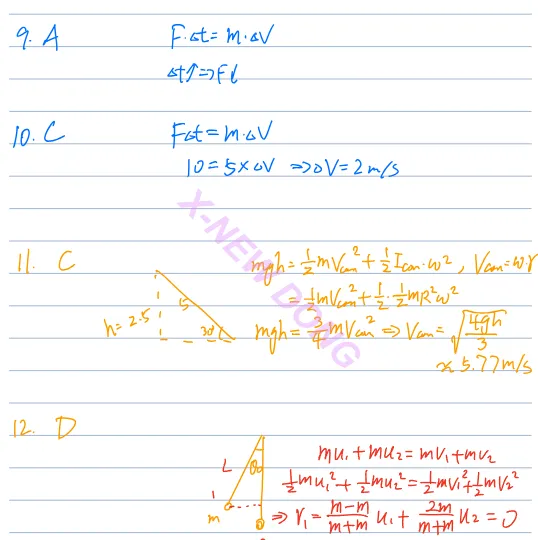 9. A F·Δt = m·ΔV
Δt↑ ⇒ F↓
10. C FΔt = m·ΔV
10 = 5×ΔV ⇒ ΔV = 2 m/s
11. C mgh = 1/2 mVcm² + 1/2 Icm·ω², Vcm = ω·r
= 1/2 mVcm² + 1/2·1/2 mR²ω²
h = 2.5 5 30° mgh = 3/4 mVcm² ⇒ Vcm = √(4gh/3)
≈ 5.77 m/s
X-NEW DONG
12. D
L θ mu₁ + mu₂ = mv₁ + mv₂
1/2 mu₁² + 1/2 mu₂² = 1/2 mv₁² + 1/2 mv₂²
m ⇒ v₁ = (m-m)/(m+m) u₁ + 2m/(m+m) u₂ = 0